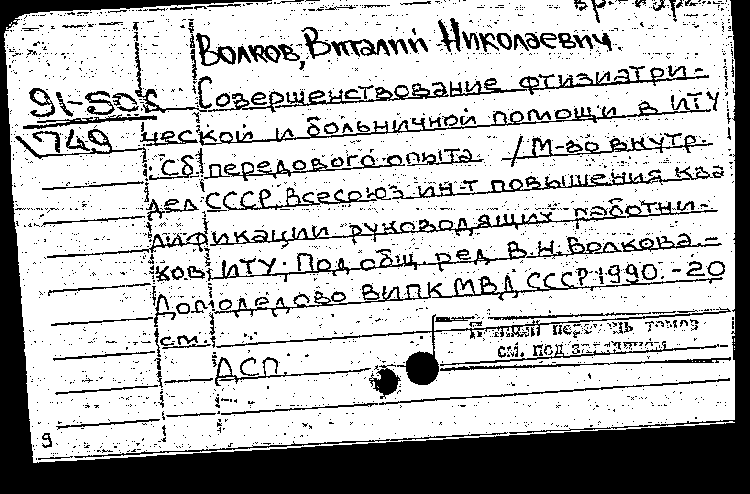 Волков, Виталий Николаевич.
91-50К
749
Совершенствование фтизиатри-
ческой и больничной помощи в ИТУ
: Сб передового опыта / М-во внутр.
дел СССР, Всесоюз ин-т повышения ква
лификации руководящих работни-
ков ИТУ; Под общ. ред В.Н. Волкова. –
Домодедово ВИПК МВД СССР, 1990. - 20
см.
Полный перечень томов
см. под заглавием
ДСП.
9